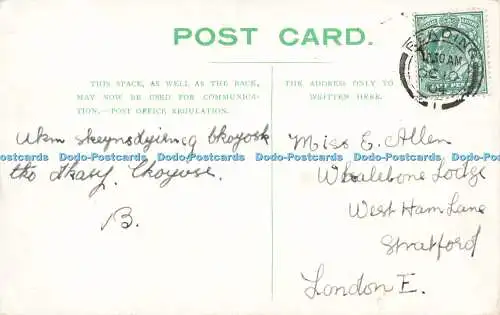 POST CARD.
THIS SPACE, AS WELL AS THE BACK,
MAY NOW BE USED FOR COMMUNICA-
TION.—POST OFFICE REGULATION.
THE ADDRESS ONLY TO
WRITTEN HERE.
READING
OC 10
04
B.
Miss E. Allen
Whalebone Lodge
West Ham Lane
Stratford
London E.
Dodo-Postcards Dodo-Postcards Dodo-Postcards Dodo-Postcards Dodo-Postcards